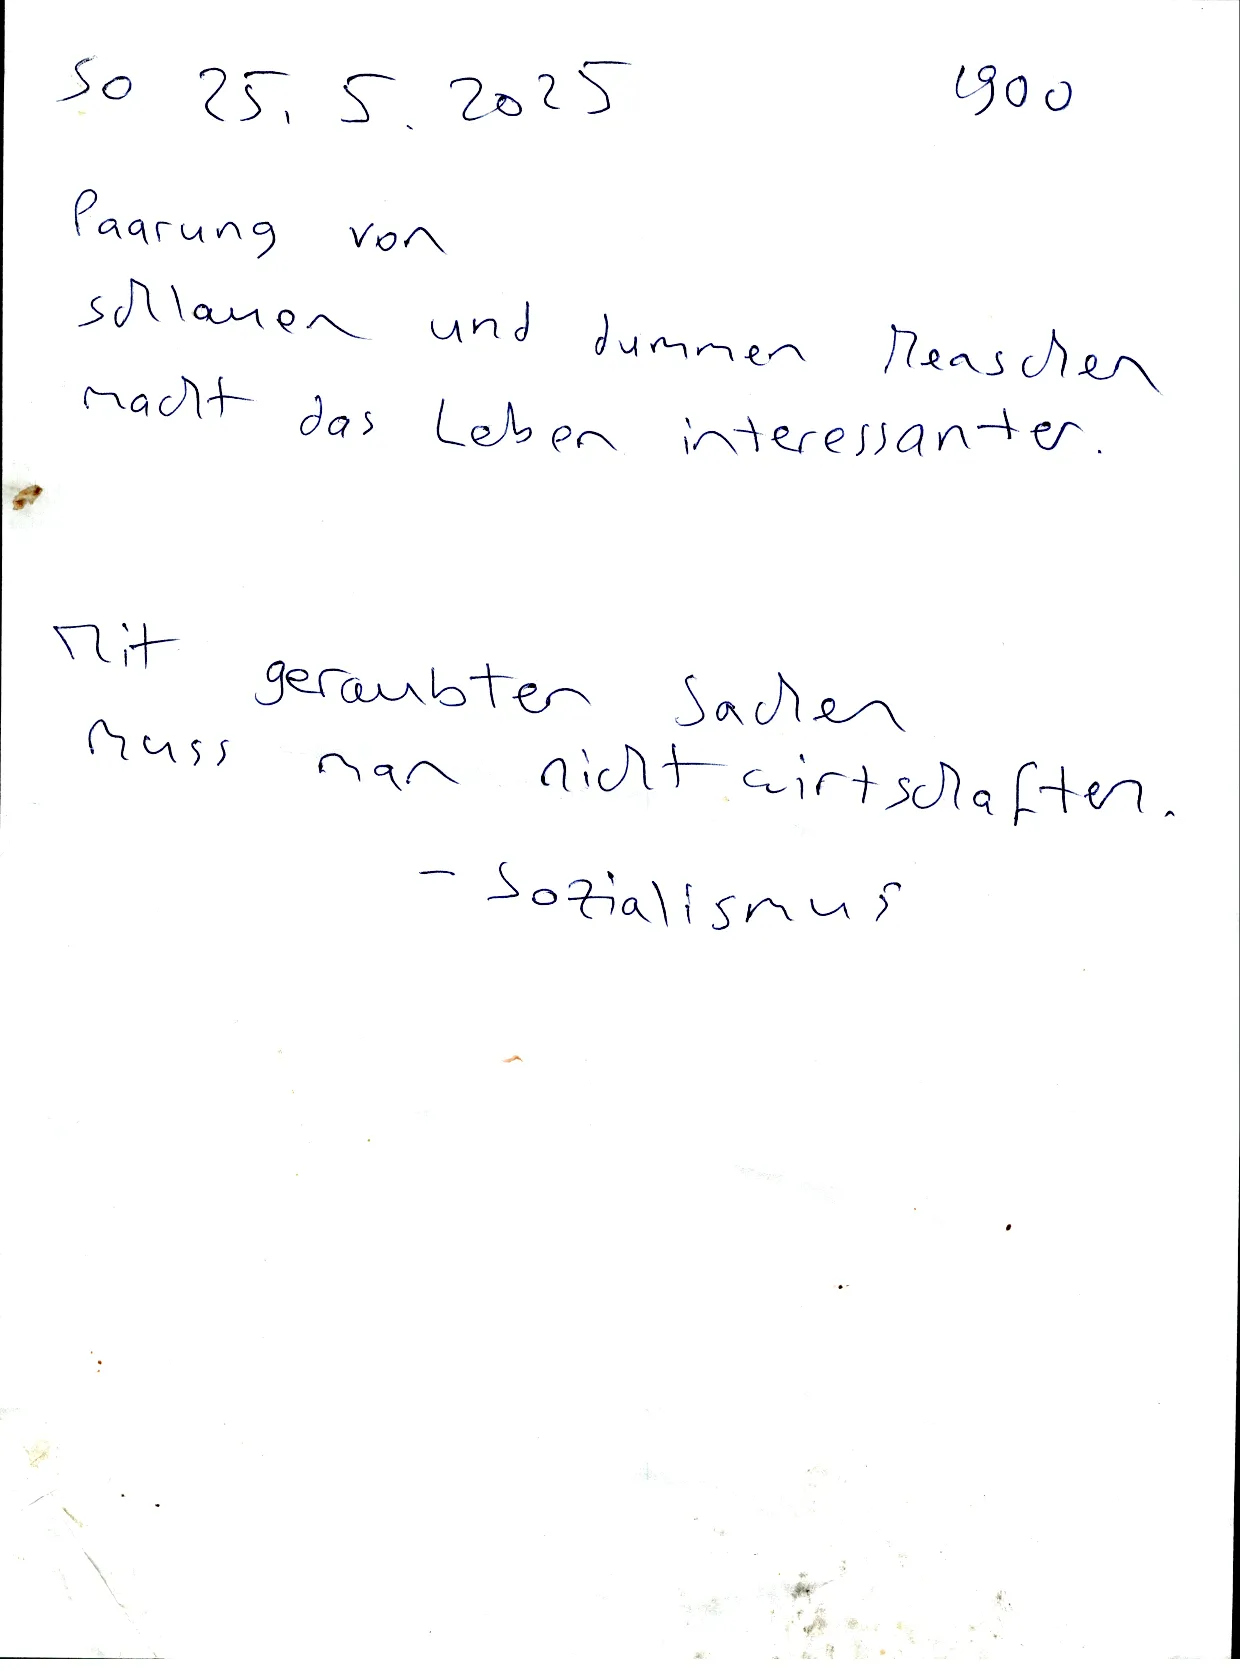 So 25. 5. 2025 1900
Paarung von
schlauen und dummen Menschen
macht das Leben interessanter.
Mit geraubten Sachen
muss man nicht wirtschaften.
- Sozialismus